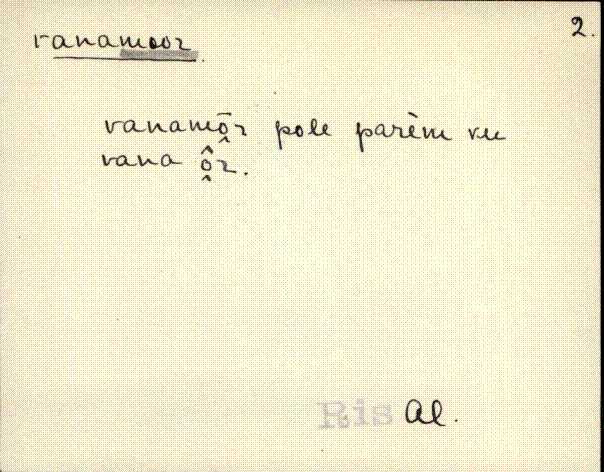 2.
vanamoor
vanamō̭r pole parèm vu
vana ô̭r.
Ris Al.